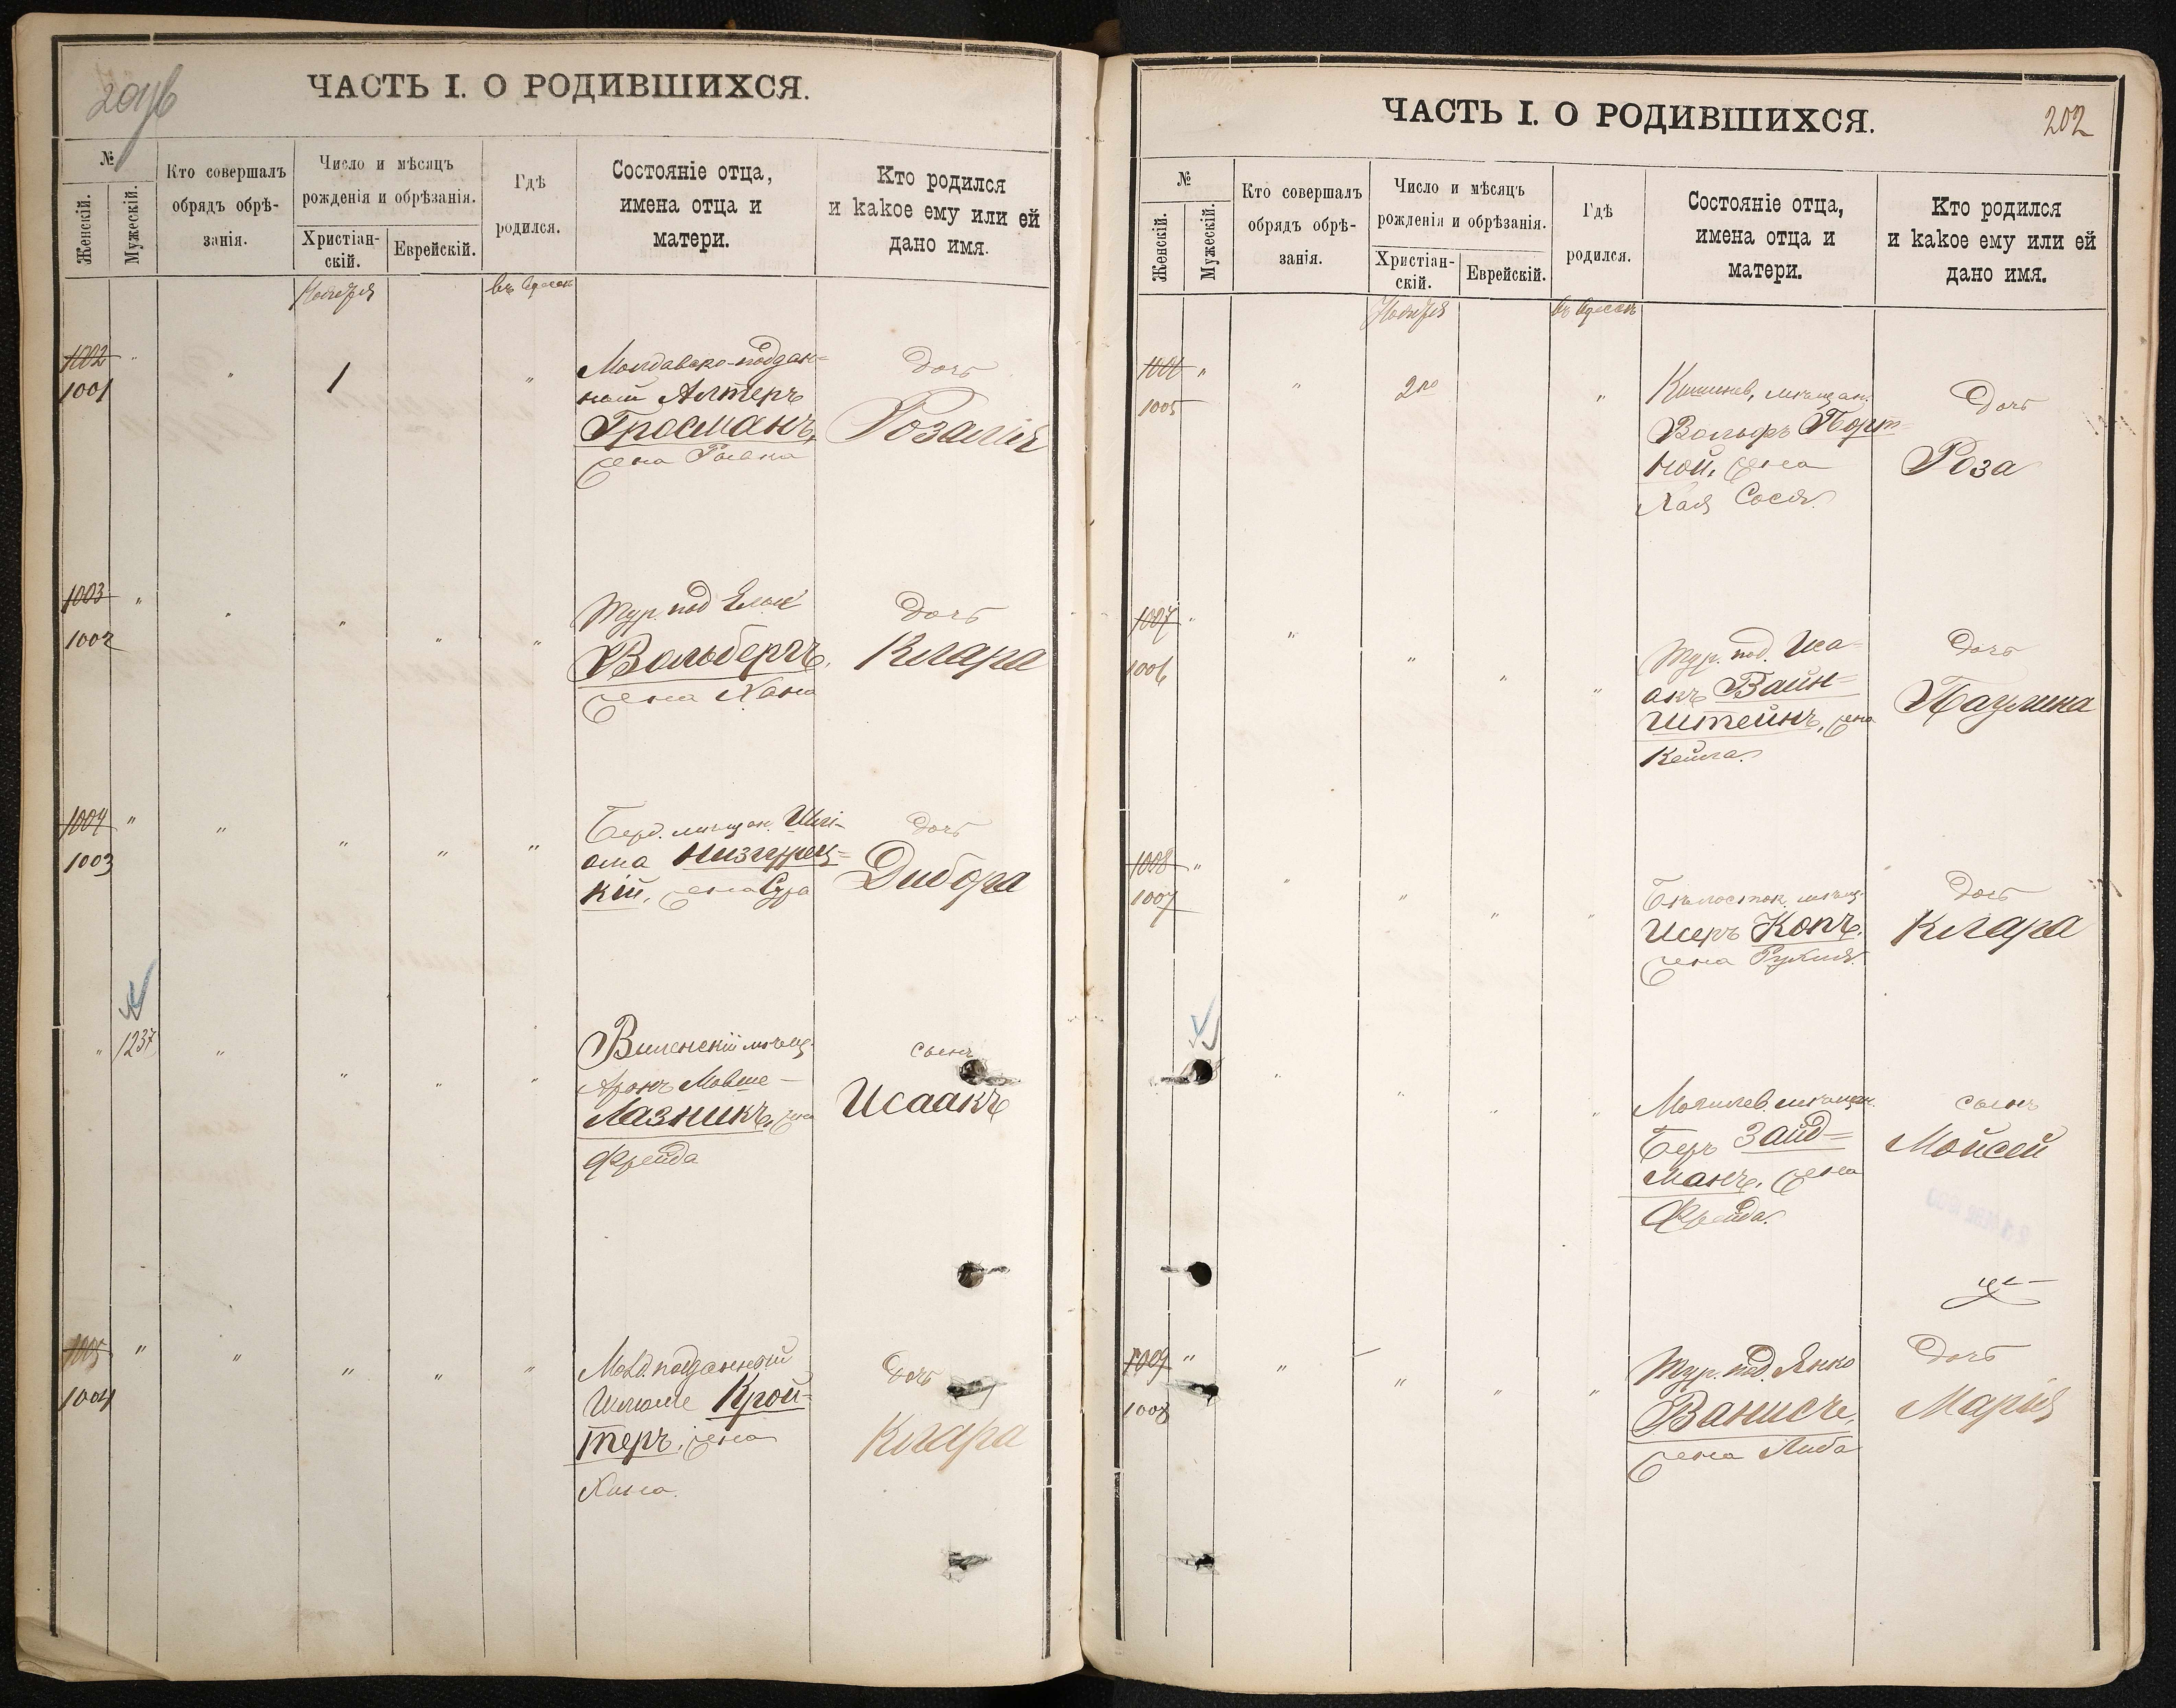 201/б
ЧАСТЬ I. О РОДИВШИХСЯ.
№
Женскій.
Мужескій.
Кто совершалъ
обрядъ обрѣ-
занія.
Число и мѣсяцъ
рожденія и обрѣзанія.
Христіан-
скій.
Еврейскій.
Гдѣ
родился.
Состояніе отца,
имена отца и
матери.
Кто родился
и какое ему или ей
дано имя.
Ноября
въ Одессѣ
1002 "
1001
"
1
"
Молдавско-поддан=
ный Алтеръ
Гросманъ,
жена
Дочь
Розалія
1003 "
1002
" " " "
Тур. под
Вольбергъ,
жена Хана
Дочь
Клара
1004 "
1003
" " " "
Берд. мѣщан. Шлі-
ома Низгурец=
кій, жена Сура
Дочь
Дибора
" 1237
" " " "
Виленскій мѣщ.
Аронъ Мовше-
Лазникъ, жена
Фрейда
сынъ
Исаакъ
1005 "
1004
" " " "
Молд. подданный
Шліоме Крой=
теръ, жена
Хина.
Дочь
Клара
ЧАСТЬ I. О РОДИВШИХСЯ.
202
№
Женскій.
Мужескій.
Кто совершалъ
обрядъ обрѣ-
занія.
Число и мѣсяцъ
рожденія и обрѣзанія.
Христіан-
скій.
Еврейскій.
Гдѣ
родился.
Состояніе отца,
имена отца и
матери.
Кто родился
и какое ему или ей
дано имя.
Ноября
въ Одессѣ
1006 "
1005
"
2го
"
Кишинев, мѣщан.
Вольфъ Порт=
ной, жена
Хая Сося.
Дочь
Роза
1007 "
1006
" " " "
Тур. под. Иса=
акъ Вайн=
штейнъ, жена
Кейла.
Дочь
Паулина
1008 "
1007
" " " "
Бѣлосток. мѣщ.
Шеръ Копъ,
жена Рухля.
Дочь
Клара
" " " "
Могилев. мѣщан.
Беръ Зайд=
манъ, жена
Фрейда.
сынъ
Мойсей
1009 "
1008
" " " "
Тур. под. Янко
Ванисъ,
жена Либа
Дочь
Марія